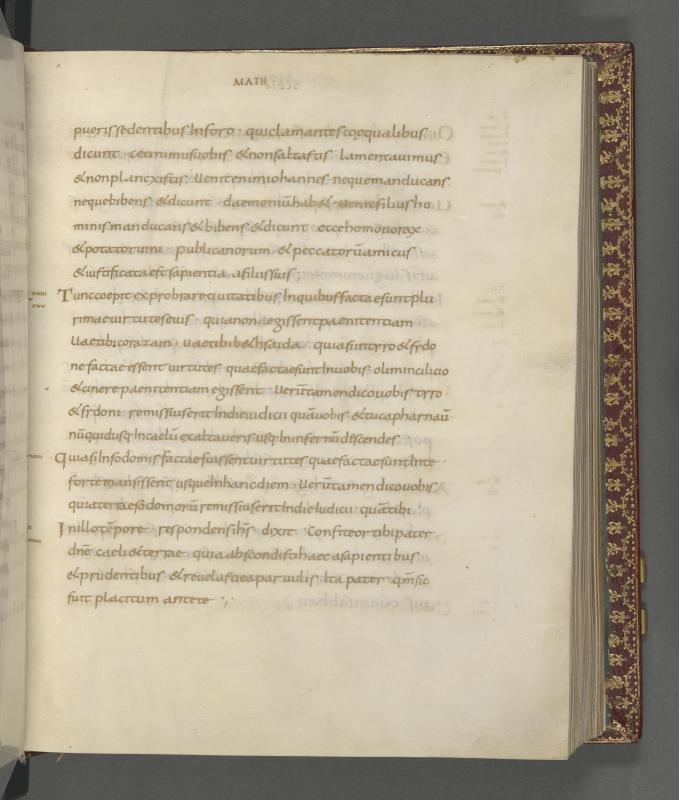 MATH
pueris sedentibus In foro · qui clamantes coęqualibus
dicunt · cecinimus uobis & non saltastis lamentauimus
& non planxistis · Uenit enim iohannes neque manducans
neque bibens & dicunt · daemoniū hab& · uenit filius ho
minis manducans & bibens · & dicunt · ecce homo uorax
& potator uini publicanorum · & peccatorū amicus
& iustificata est sapientia a filiis suis ;
Tunc coepit exprobrare ciuitatibus In quibus factae sunt plu
rimae uirtutes eius · quia non aegissent paenitentiam ·
Uae tibi corazain · uae tibi b&hsaida · quia si In tyro & sydo
ne factae essent uirtutes quae factae sunt In uobis olim in cilicio
& cinere paenitentiam egissent · Uerūtamen dico uobis tyro ·
& sydoni remissius erit In die iudicii quā uobis · & tu capharnaū
nūquid usq; In caelū exaltaueris usq; In infernū descendes
Quia si In sodomis factae fuissent uirtutes quae factae sunt In te ·
forte mansissent usque In hanc diem · Uerūtamen dico uobis
quia terrae sodomorū remissius erit In die Iudicii quā tibi
In illo tēpore respondens ih̄s dixit · Confiteor tibi pater
dn̄e caeli & terrae quia abscondisti haec a sapientibus
& prudentibus & reuelasti ea paruulis Ita pater qm̄ sic
fuit placitum ante te ·,·